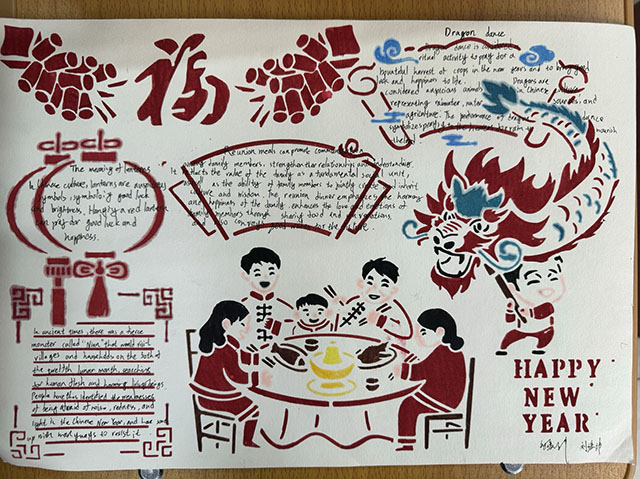 福
Dragon dance
dance is
ritual activity to pray for a
bountiful harvest of crops in the new year and to bring good
luck and happiness to life. Dragons are
considered auspicious animals in Chinese
representing rainwater, and
agriculture. The performance of dragon dance
symbolizes
The meaning of lanterns
In Chinese culture, lanterns are auspicious
symbols symbolizing good luck
and brightness. Hanging a red lantern
can pray for good luck and
happiness.
Reunion meals can promote communication
among family members, strengthen their relationships and understanding.
It reflects the value of the family as a fundamental social unit,
as well as the ability of family members to jointly create and inherit
culture and wisdom. The reunion dinner emphasizes the harmony
and happiness of the family, enhances the love and emotions of
family members through sharing food and
also for the
In ancient times, there was a fierce
monster called "Nian" that would visit
villages and households on the 30th of
the twelfth lunar month, searching
for human flesh and harming living beings.
People have thus identified the weaknesses
of being afraid of noise, redness, and
light in the Chinese New Year, and have come
up with many ways to resist it.
HAPPY
NEW
YEAR